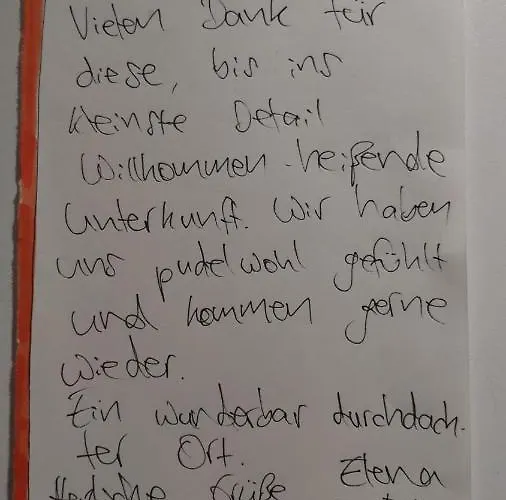 Vielen Dank für
diese, bis ins
kleinste Detail
Willkommen-heißende
Unterkunft. Wir haben
uns pudelwohl gefühlt
und kommen gerne
wieder.
Ein wunderbar durchdach-
ter Ort.
Grüße Elena